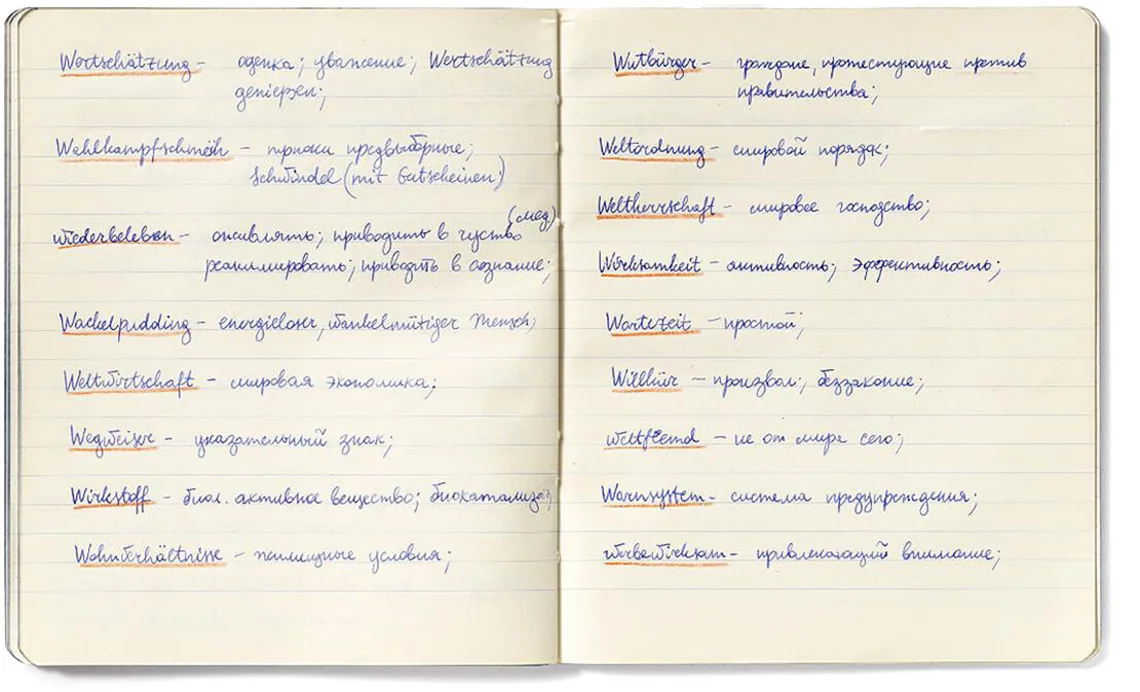 Wertschätzung - оценка; уважение; Wertschätzung
genießen;
Wahlkampfschmäh - трюки предвыборные;
Schwindel (mit Gutscheinen;)
(мед)
wiederbeleben - оживлять; приводить в чуство
реанимировать; приводить в сознание;
Wackelpudding - energieloser, wankelmütiger Mensch;
Weltwirtschaft - мировая экономика;
Wegweiser - указательный знак;
Wirkstoff - биол. активное вещество;
Wohnverhältnisse - жилищные условия;
Wutbürger - граждане, протестующие против
правительства;
Weltordnung - мировой порядок;
Weltherrschaft - мировое господство;
Wirksamkeit - активность; эффективность;
Wartezeit - простой;
Willkür - произвол; беззаконие;
weltfremd - не от мира сего;
Warnsystem - система предупреждения;
werbewirksam - привлекающий внимание;